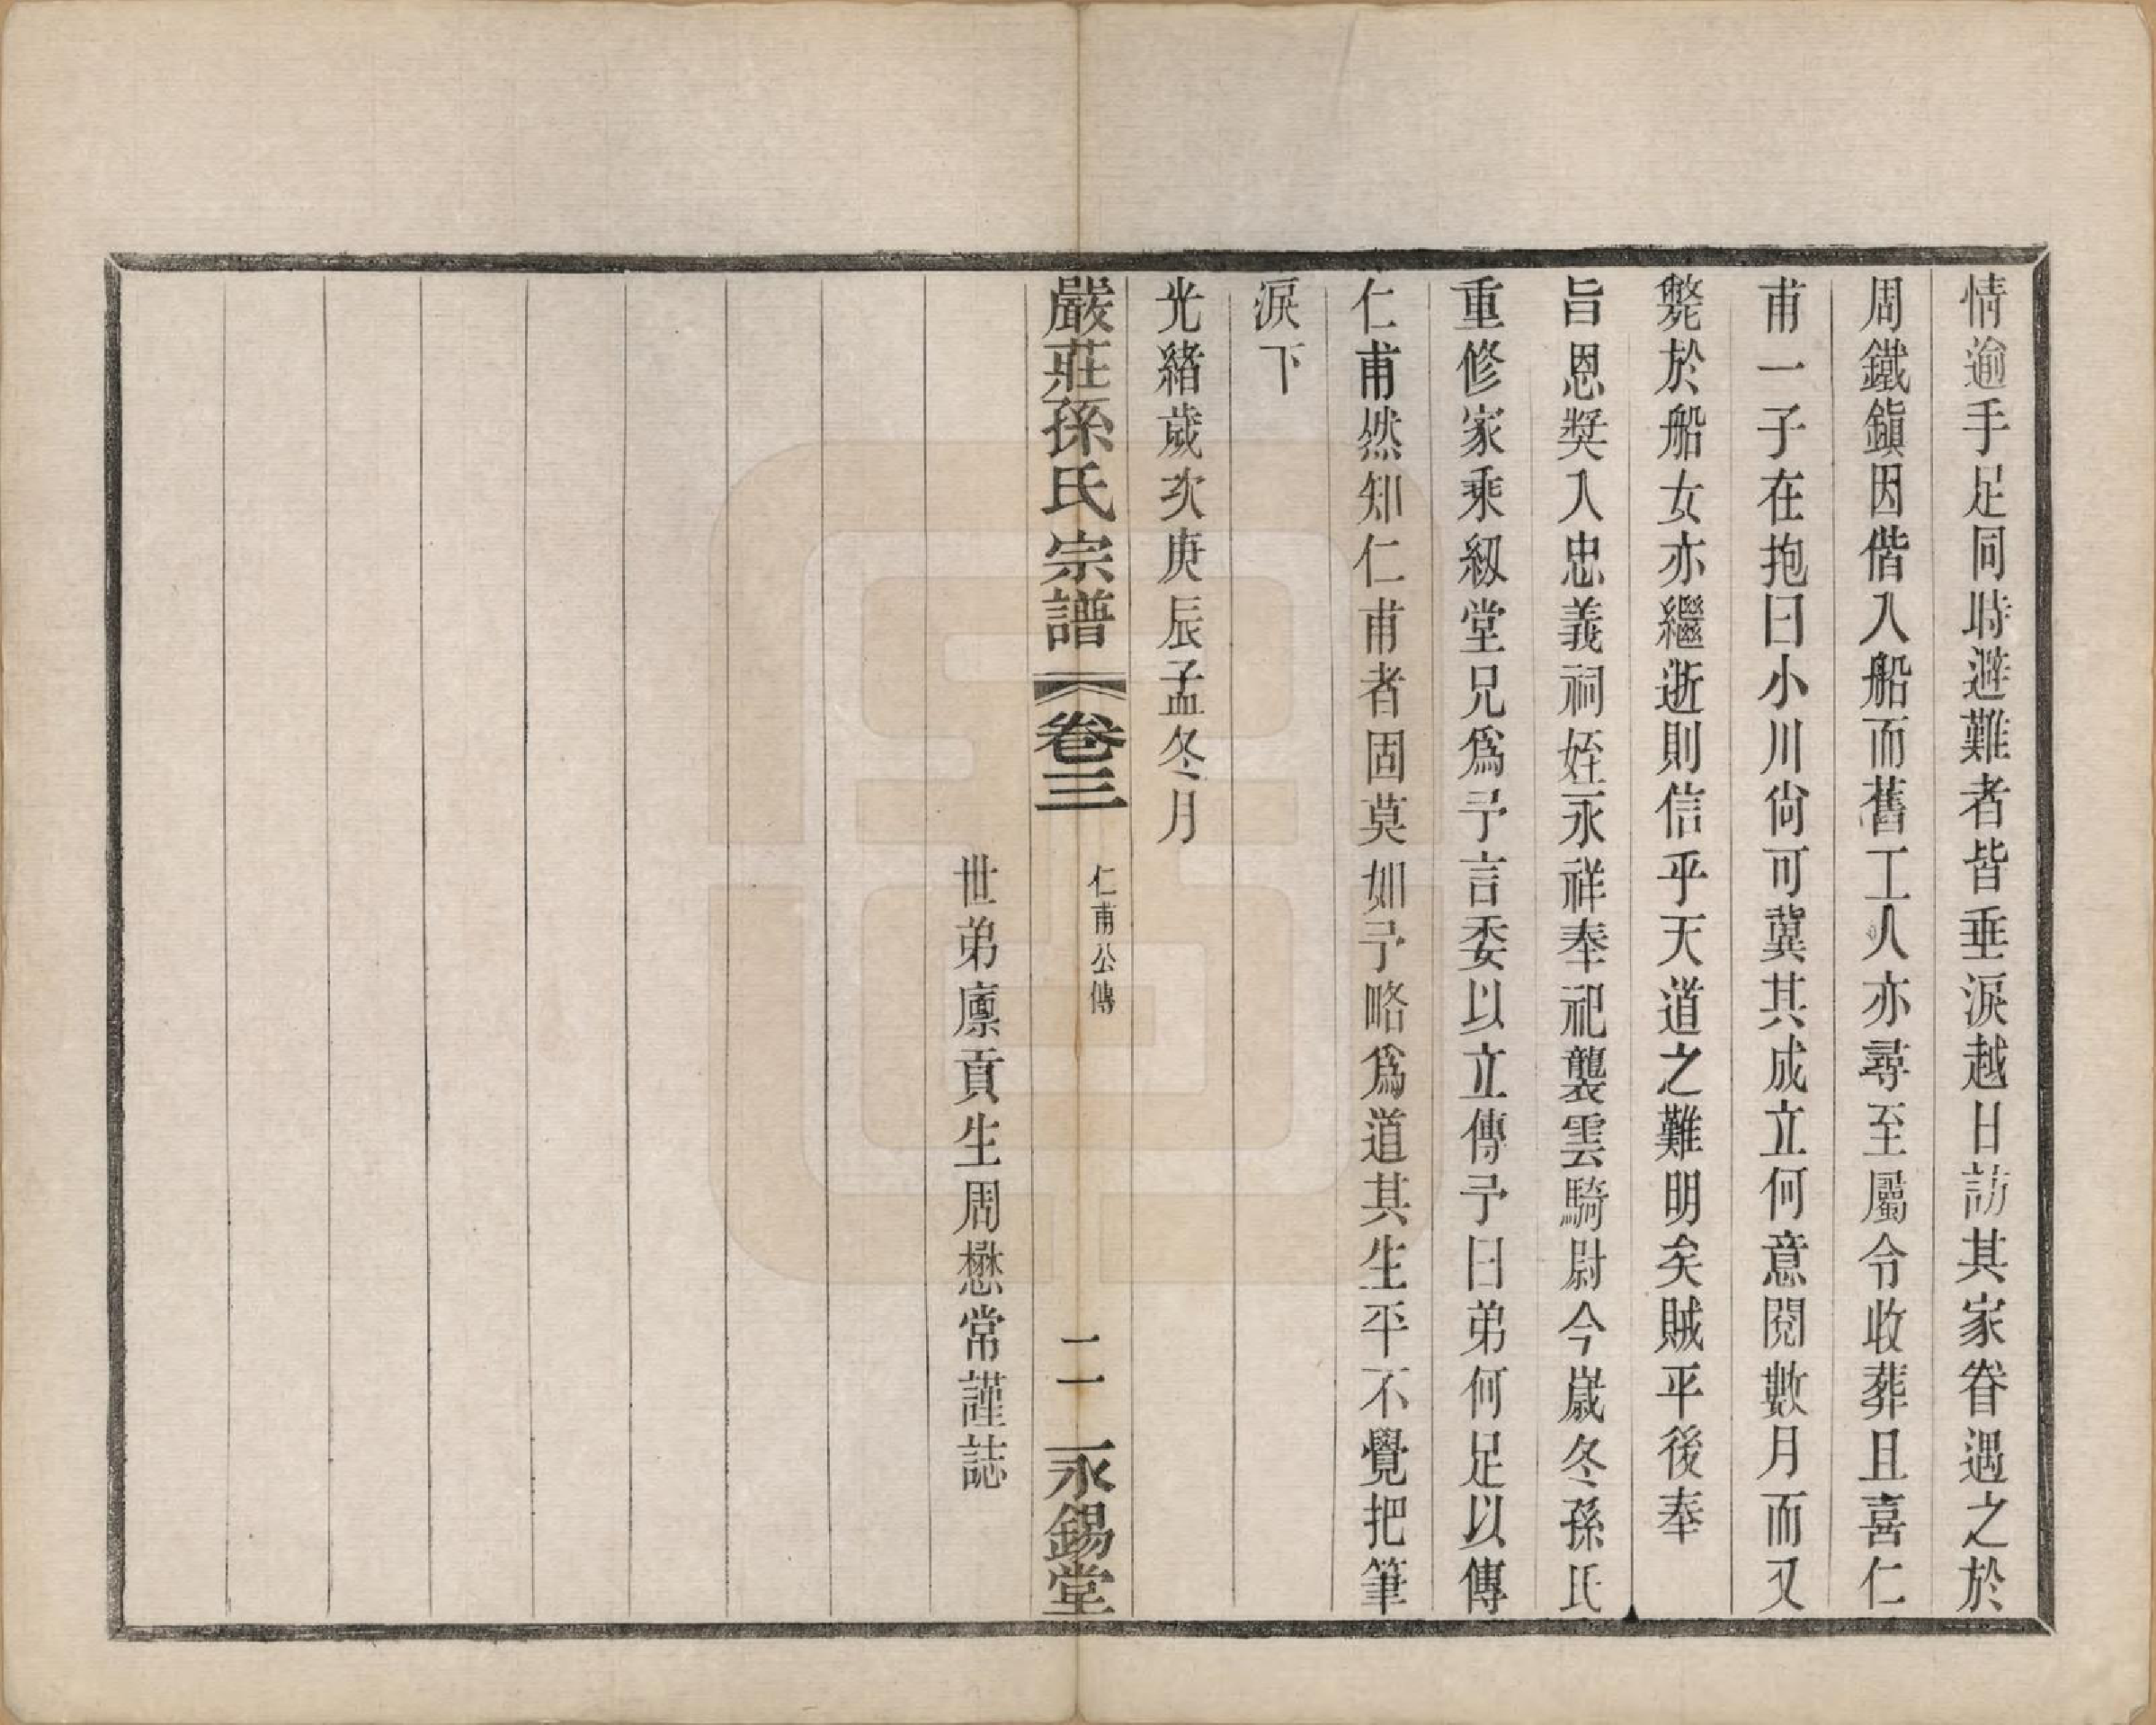 情逾手足同時避難者皆垂淚越日訪其家眷遇之於
周鐵鎭因偕入船而舊工人亦尋至屬令收葬且喜仁
甫一子在抱曰小川尙可冀其成立何意閱數月而又
斃於船女亦繼逝則信乎天道之難明矣賊平後奉
旨恩奬入忠義祠姪永祥奉祀襲雲騎尉今歲冬孫氏
重修家乘紉堂兄爲予言委以立傳予曰弟何足以傳
仁甫然知仁甫者固莫如予略爲道其生平不覺把筆
淚下
光緖歲次庚辰孟冬月
嚴莊孫氏宗譜 卷三 仁甫公傳 二 永錫堂
世弟廩貢生周懋常謹誌